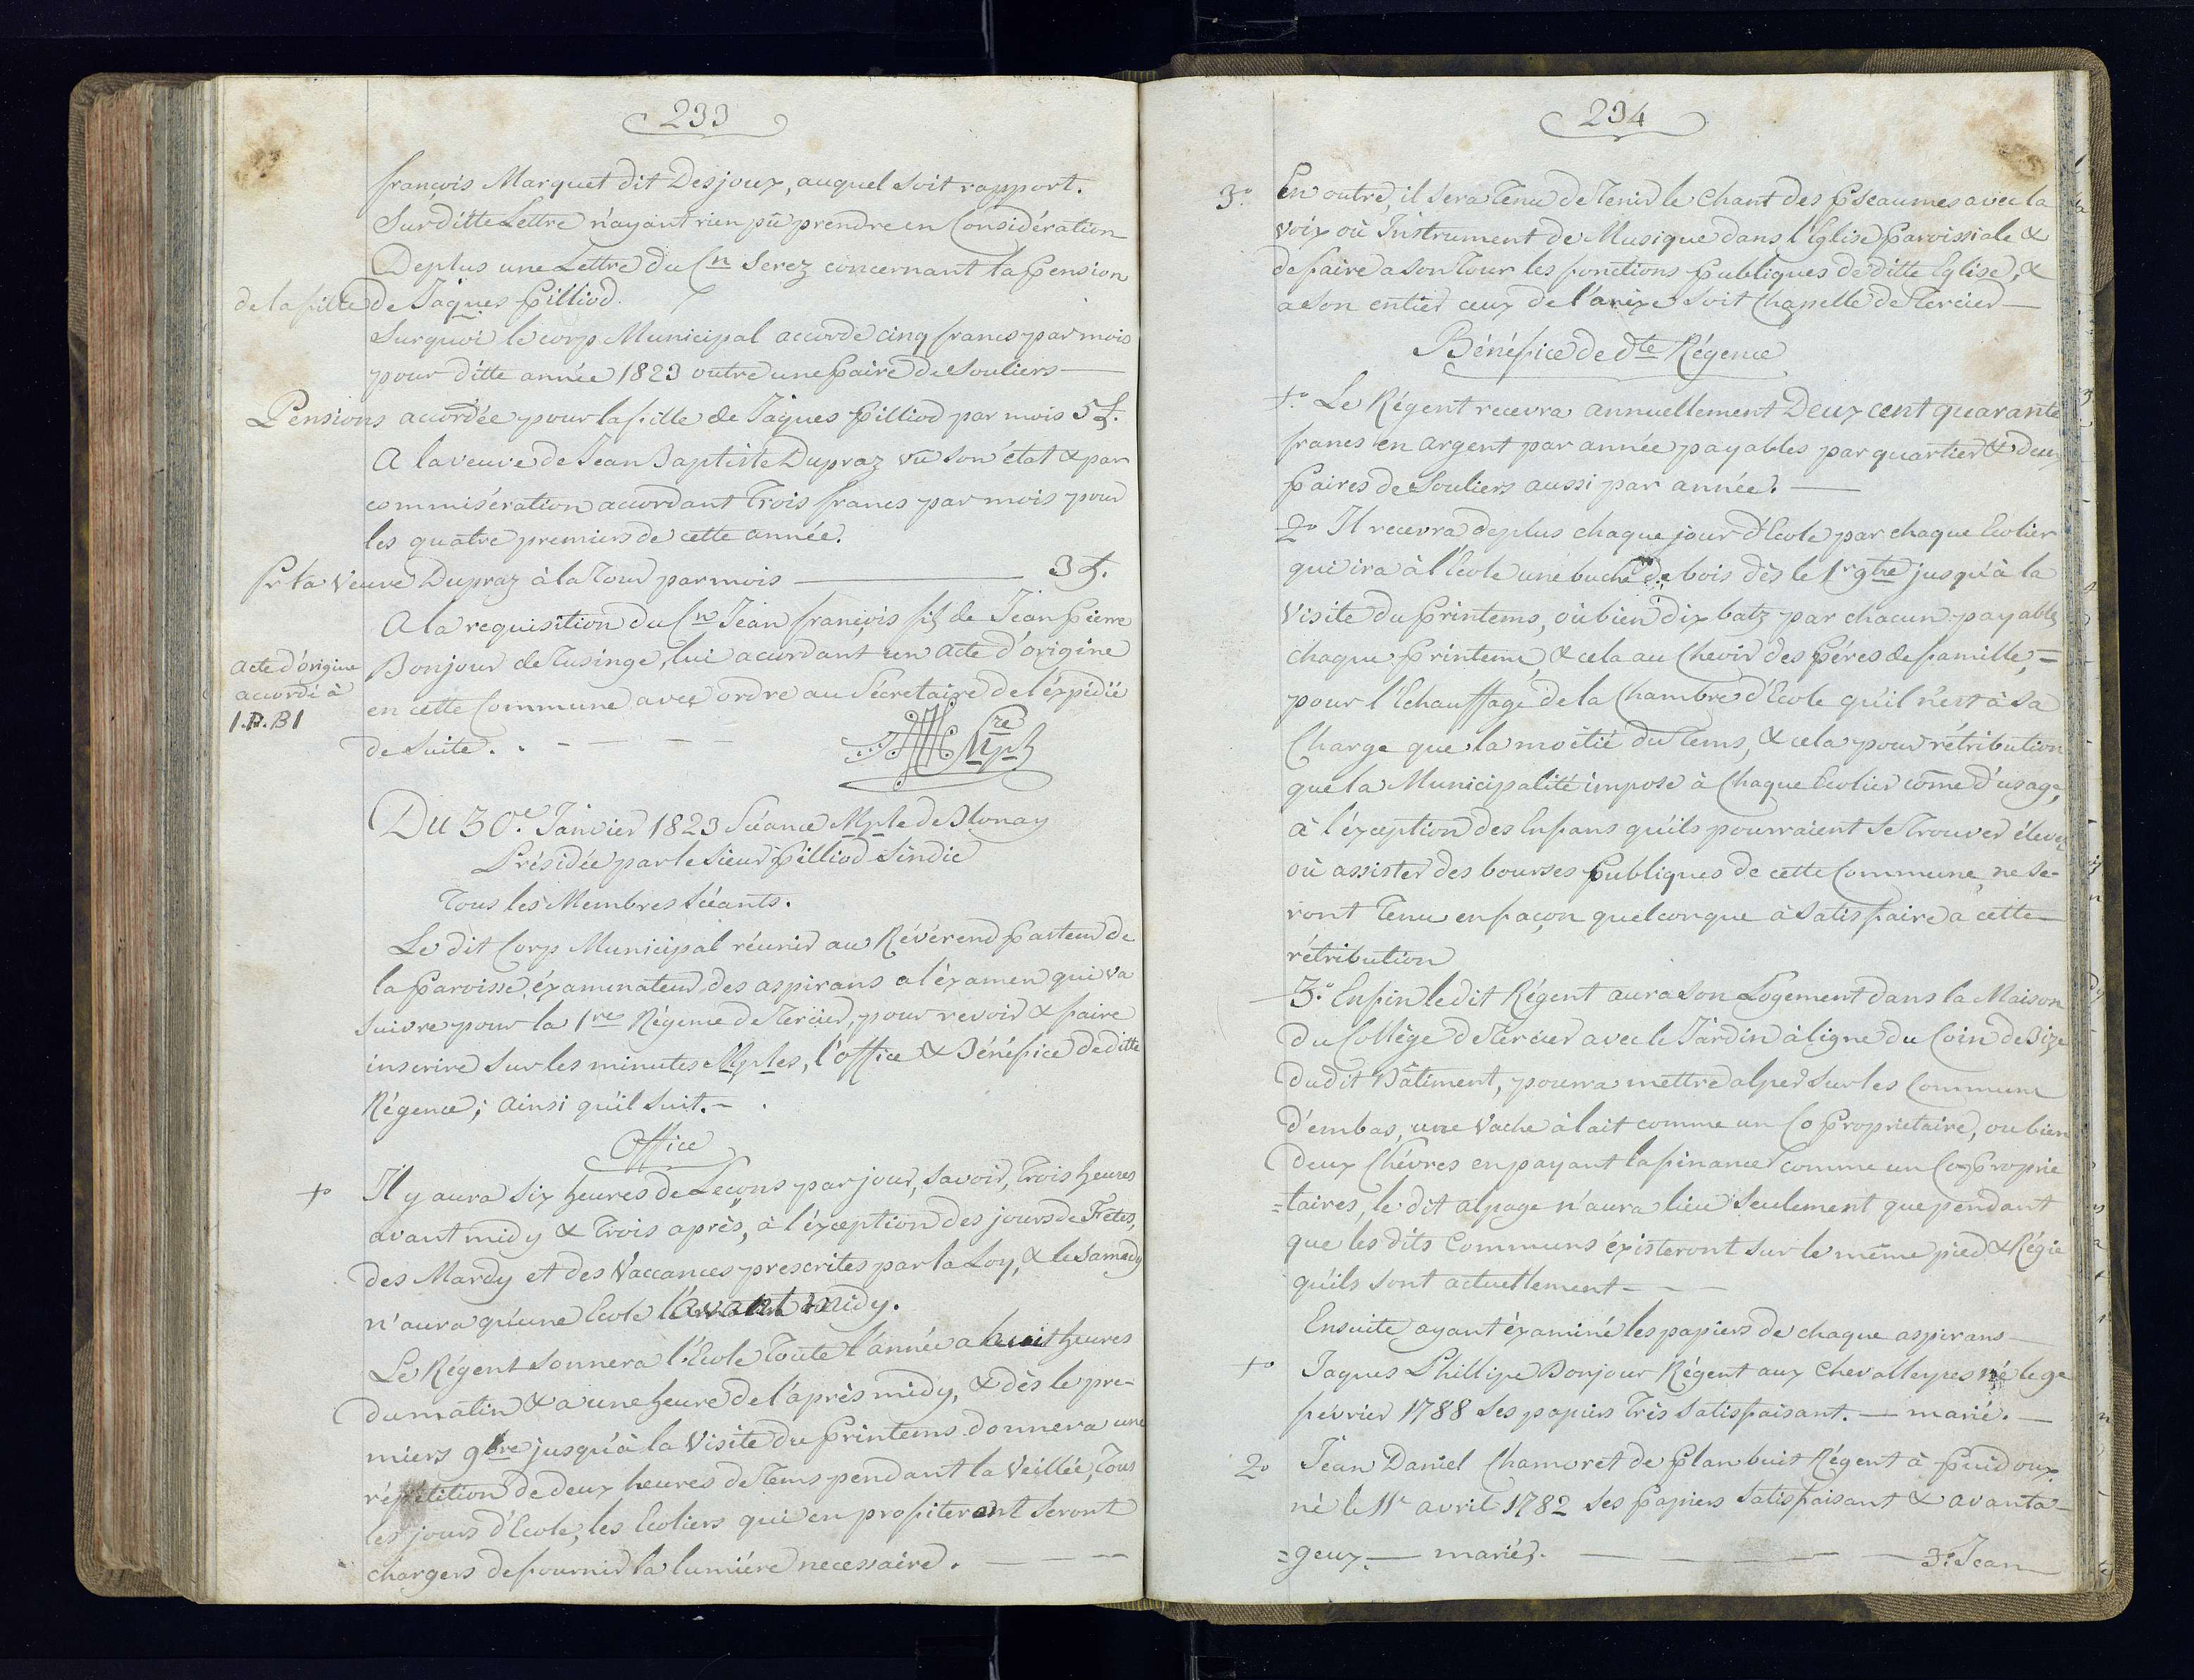 233
françois Marquet dit Desjoux, auquel soit rapport.
Surditte Lettre n'ayant rien pû prendre en Considération
Deplus une Lettre du Cn Serez concernant la Pension
de la fille de Jâques Pilliod.
Surquoi le corp Municipal accorde cinq francs par mois
pour ditte année 1823 outre une Paire de Souliers —
Pensions accordée pour la fille de Jâques Pilliod par mois 5 f.
A la veuve de Jean Baptiste Dupraz vû son état & par
commisération accordant Trois francs par mois pour
les quatre premiers de cette année.
Pr la Veuve Dupraz à la Tour par mois — 3 f.
A la requisition du Cn Jean françois fils de Jean Pierre
Bonjour de Tusinge, lui acordant un acte d'origine
en cette Commune avec ordre au Sécretaire de l'éxpédié
de Suite. . — — —
acte d'origine
accordé à
J.P.BJ
Sre
Mple
Du 30e. Janvier 1823 Séance Mple de Blonay
Présidée par le Sieur Pilliod Sindic
Tous les Membres Séants.
Le dit Corp Municipal réunir au Révérend Pasteur de
la Paroisse, éxaminateur des aspirans a l'éxamen qui va
suivre pour la 1re Régence de Tercier, pour revoir & faire
inscrire Sur les minutes Mples, l'office & Bénéfice de ditte
Régence; ainsi qu'il suit. — .
Office
1o Il y aura six heures de Leçons par jour, savoir, Trois heures
avant midy & Trois après, à l'éxception des jours de Fêtes,
des Mardy et des Vaccances prescrites par la Loy, & le Samedy
n'aura qu'une Ecole l'avant midy.
Le Régent sonnera l'Ecole Toute l'année a huit heures
du matin & a une heure de l'après midy, & dès le pre-
miers 9bre jusqu'à la Visite du Printems donnera une
répétition de deux heures de Tems pendant la Veillée, Tous
les jours d'Ecole, les Ecoliers qui en profiteront Seront
chargers de fournir la lumiére necessaire. — — —
234
3o. En outre, il sera Tenu de Tenir le Chant des Pseaumes avec la
Voix où Instrument de Musique dans l'Eglise Paroissiale &
de faire a son Tour les fonctions Publiques de ditte Eglise, &
a son entier ceux de l'anixe soit Chapelle de Tercier —
Bénéfice de dte Régence
1o. Le Régent recevra annuellement Deux cent quarante
francs en argent par année payables par quartier & deux
Paires de Souliers aussi par année. —
2o Il recevra deplus chaque jour d'Ecole par chaque Ecolier
qui ira à l'école une buche de bois dès le 1r 9bre jusqu'à la
Visite du Printems, où bien dix batz par chacun payables
chaque Printems, & cela au Chevir des Péres de famille, =
pour l'Echauffage de la Chambre d'Ecole qu'il n'est à Sa
Charge que la moitié du Tems, & cela pour rétribution
que la Municipalité impose à Chaque Ecolier come d'usage,
à l'éxception des Enfans qu'ils pourraient se Trouver élevez
où assister des bourses Publiques de cette Commune, ne Se-
ront Tenu en façon quelconque à Satisfaire a cette
rétribution
3o. Enfin le dit Régent aura son Logement dans la Maison
du Collège de Tercier avec le Jardin à ligne du Coin de Bize
dudit Bâtiment, pourra mettre alper sur les Communs
d'embas, une Vache à lait comme un Co Proprietaire, ou bien
deux Chévres en payant la finance comme un Co Proprie
=taires, le dit alpage n'aura lieu Seulement que pendant
que les dits Communs éxisteront sur le même pied & Régie
qu'ils sont actuellement — — —
Ensuite ayant éxaminé les papiers de chaque aspirans —
1o Jaques Phillipe Bonjour Régent aux Chevalleyres né le 9e
février 1788 ses papiers Très Satisfaisant. — marié. —
2o Jean Daniel Chamoret de Planbuit Régent à Puidoux
né le 11e avril 1782 ses Papiers Satisfaisant & avanta-
=geux. — mariés. — — — —
3o. Jean